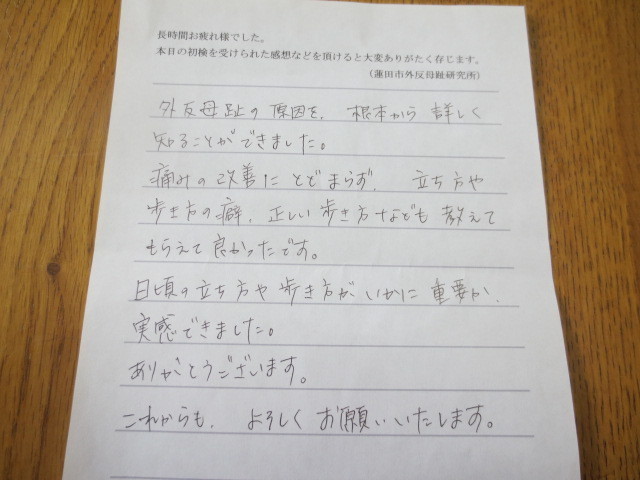 長時間お疲れ様でした。
本日の初検を受けられた感想などを頂けると大変ありがたく存じます。
（蓮田市外反母趾研究所）
外反母趾の原因を、根本から詳しく
知ることができました。
痛みの改善にとどまらず、立ち方や
歩き方の癖、正しい歩き方なども教えて
もらえて良かったです。
日頃の立ち方や歩き方がいかに重要か、
実感できました。
ありがとうございます。
これからも、よろしくお願いいたします。